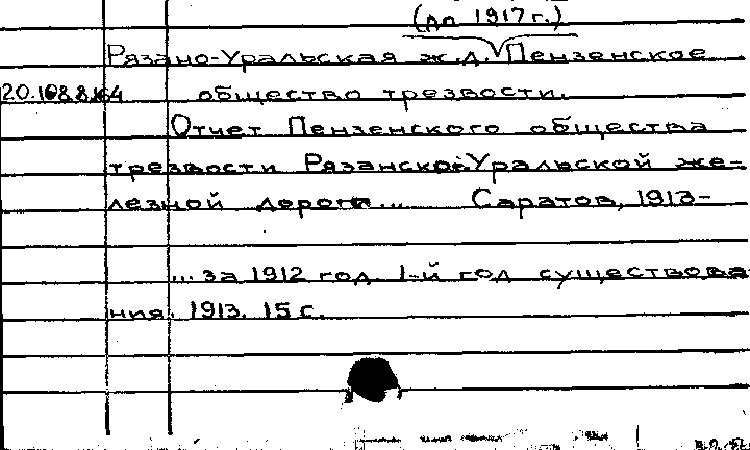 (до 1917 г.)
Рязано-Уральская ж.д. Пензенское
20.168.8.164 общество трезвости.
Отчет Пензенского общества
трезвости Рязанско-Уральской же-
лезной дороги... Саратов, 1913-
... за 1912 год. 1-й год существова
ния. 1913. 15 с.